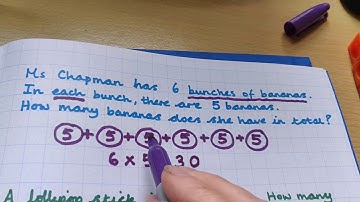 Ms Chapman has 6 bunches of bananas.
In each bunch, there are 5 bananas.
How many bananas does she have in total?
5 + 5 + 5 + 5 + 5 + 5
6 × 5 30
A lollipop stick How many